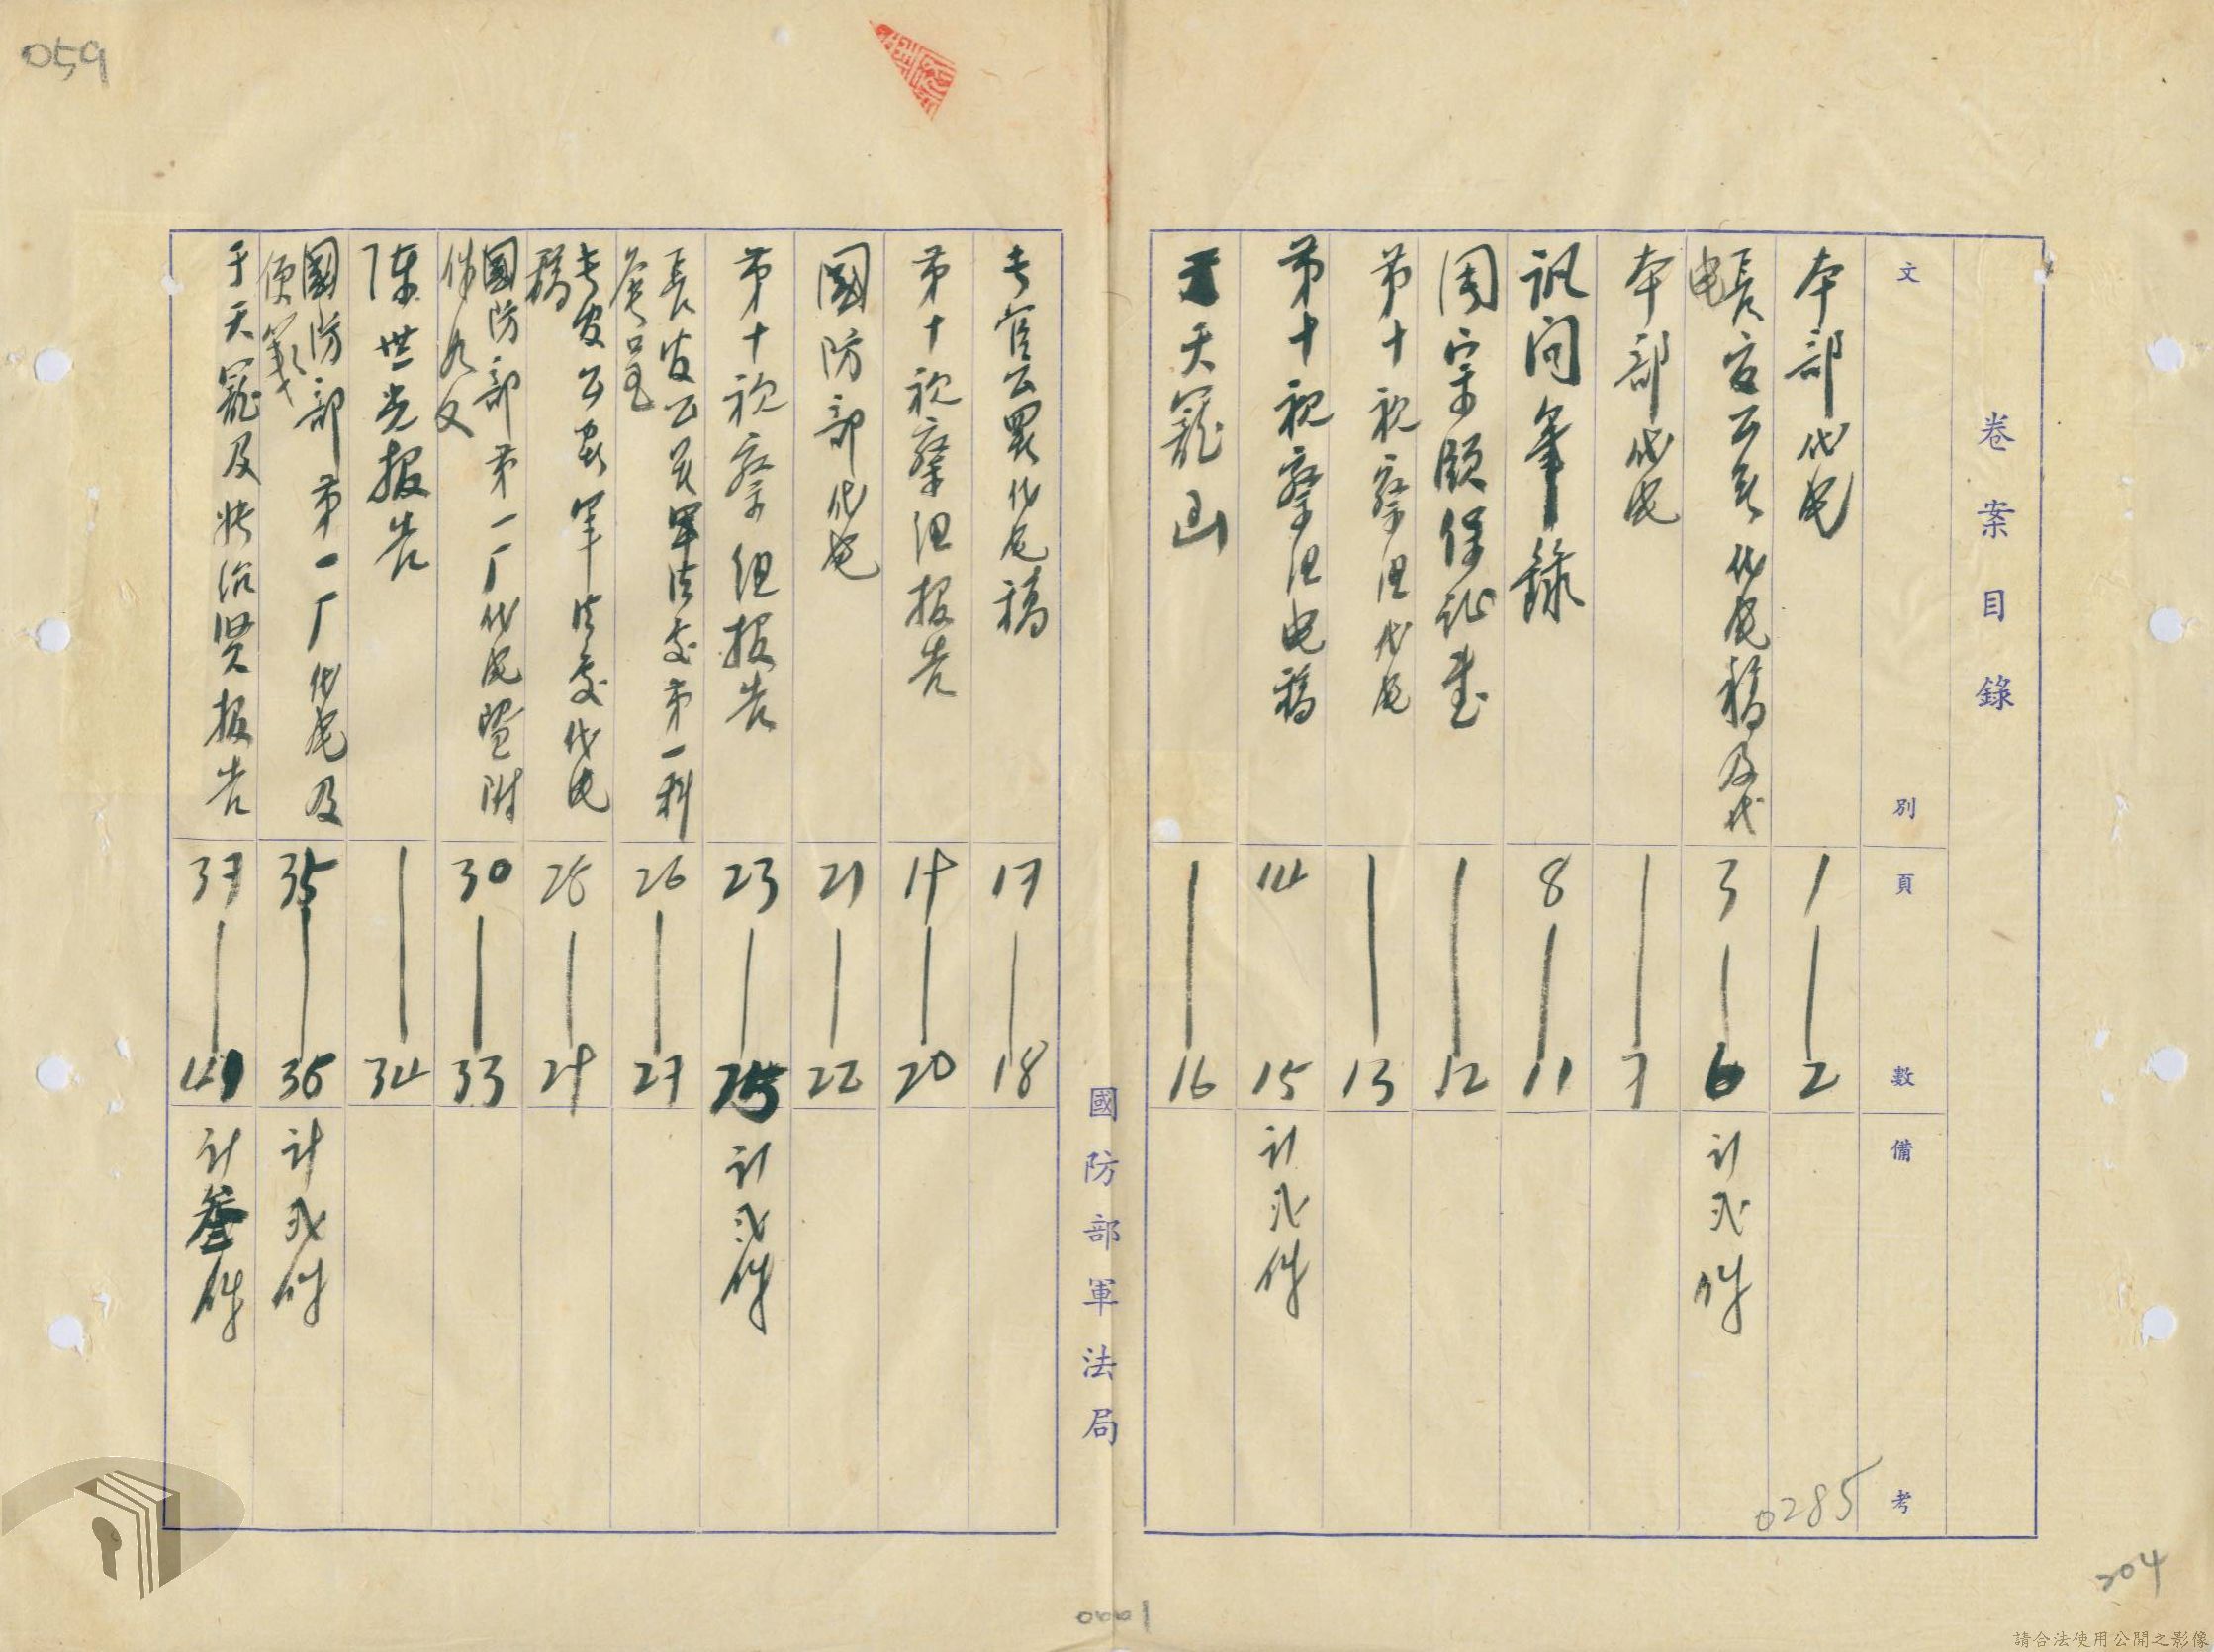 059
卷案目錄
文別
頁數
備考
本部代电 1—2
長官公署代电稿及代电 3—6 計弍件
本部代电 —7
訊问筆錄 8—11
周宗頤保证書 —12
第十視察组代电 —13
第十視察组电稿 14—15 計弍件
于天寵 —16
長官公署代电稿 17—18
第十視察组报告 19—20
國防部代电 21—22
第十視察组报告 23—25 計弍件
長官公署軍法处第一科簽呈 26—27
長官公署軍法處代电稿 28—29
國防部第一厂代电暨附件 30—33
陳世光报告 —34
國防部第一厂代电及便箋 35—36 計弍件
于天寵及 报告 37— 計叁件
國防部軍法局
0285
204
0001
請合法使用公開之影像